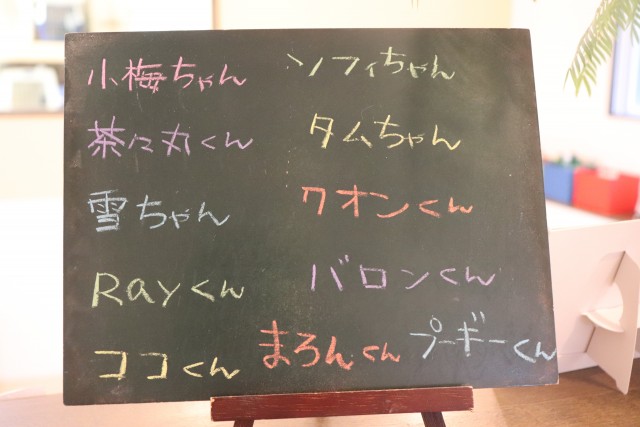 小梅ちゃん
茶々丸くん
雪ちゃん
Rayくん
ココくん
ソフィちゃん
タムちゃん
クオンくん
バロンくん
まろんくん
プーギーくん